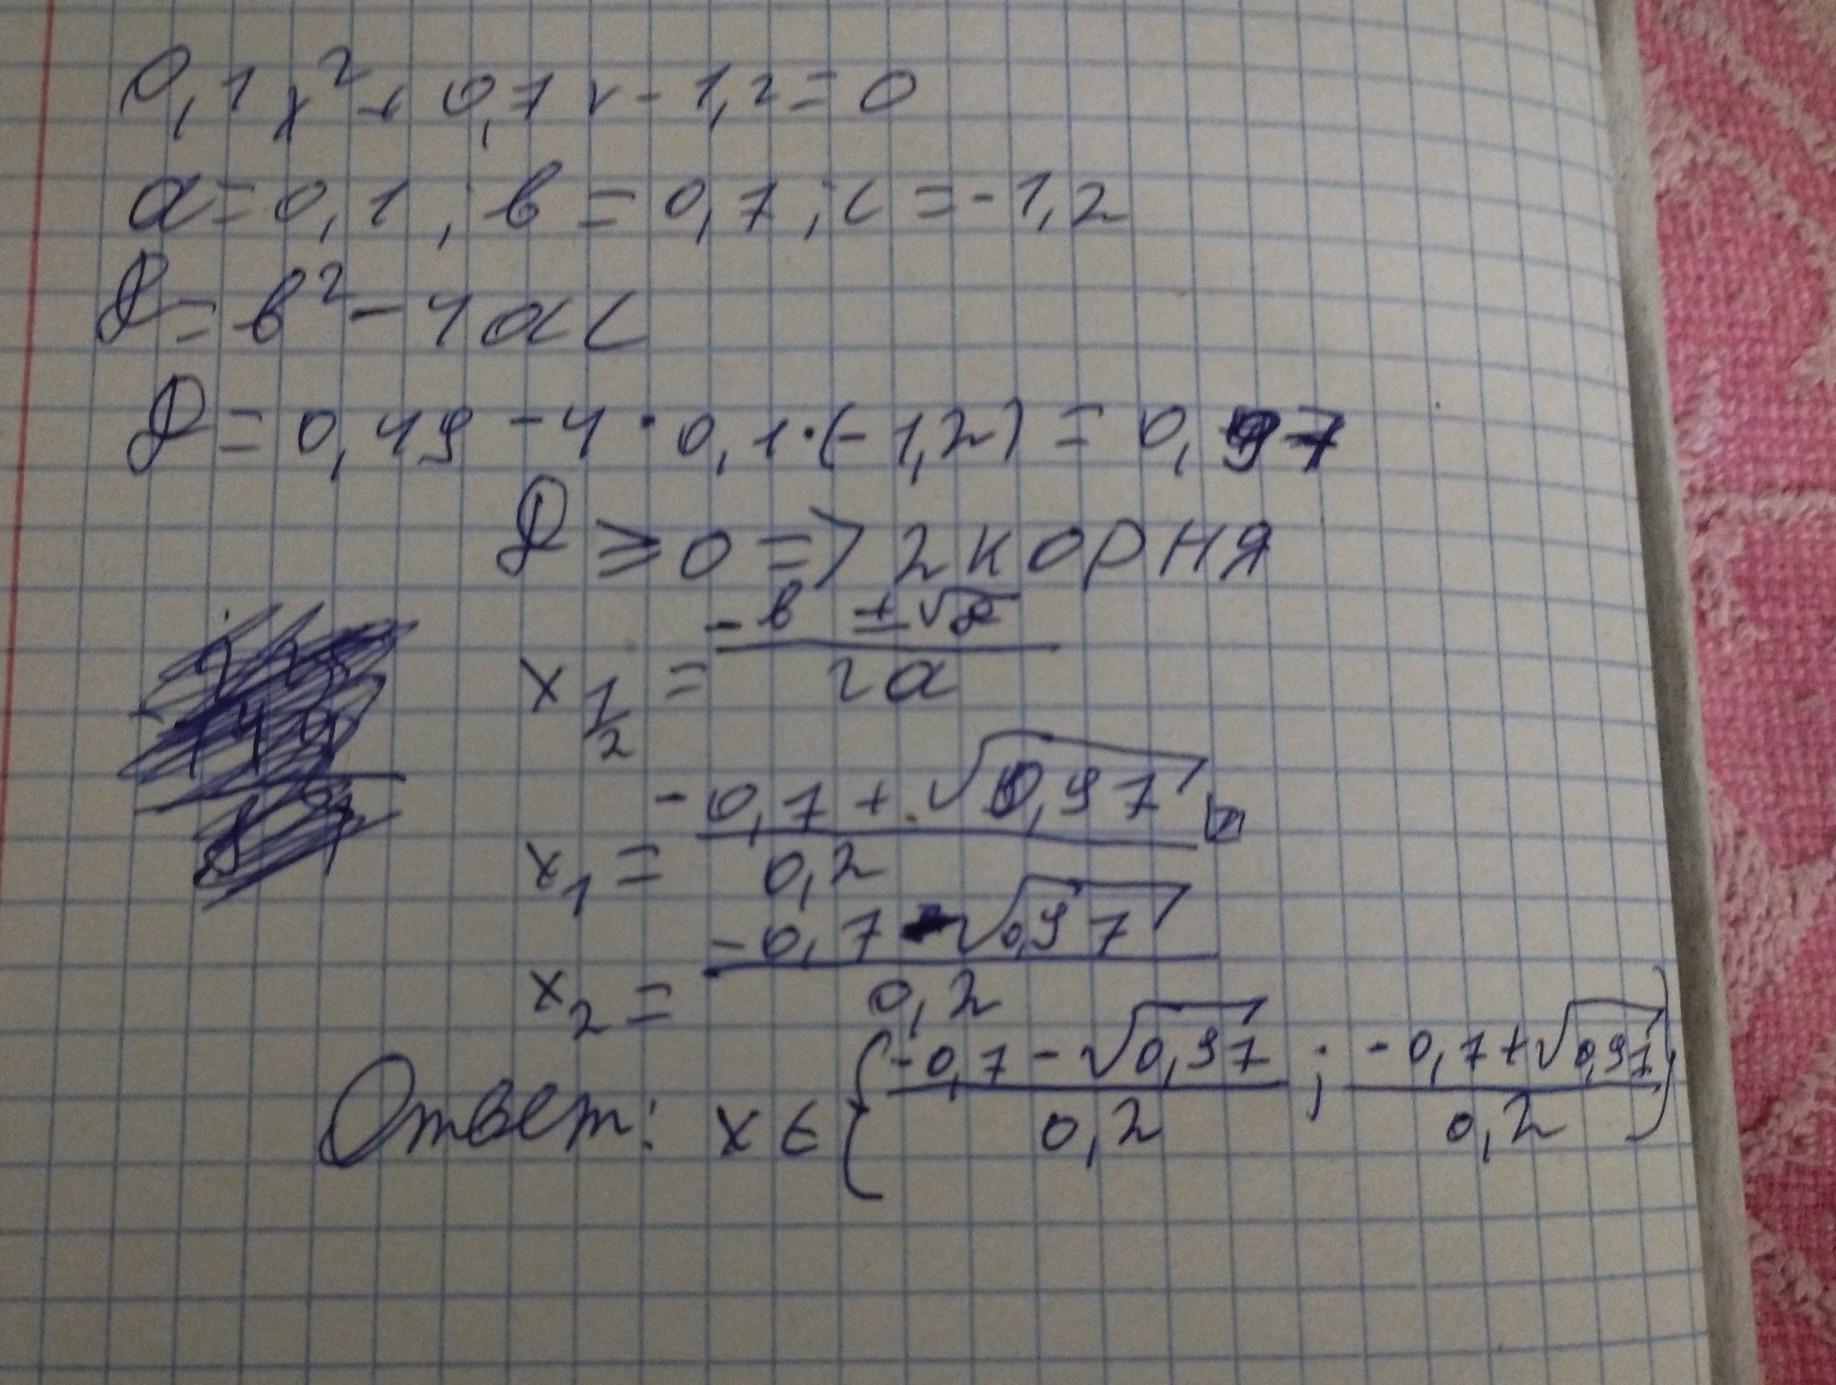 0,1x² + 0,7x - 1,2 = 0
a = 0,1 ; b = 0,7 ; c = -1,2
D = b² - 4ac
D = 0,49 - 4 · 0,1 · (-1,2) = 0,97
D ≥ 0 => 2 корня
x_{1/2} = (-b ± √D) / 2a
x₁ = (-0,7 + √0,97) / 0,2
x₂ = (-0,7 - √0,97) / 0,2
Ответ: x ∈ {(-0,7 - √0,97) / 0,2 ; (-0,7 + √0,97) / 0,2}